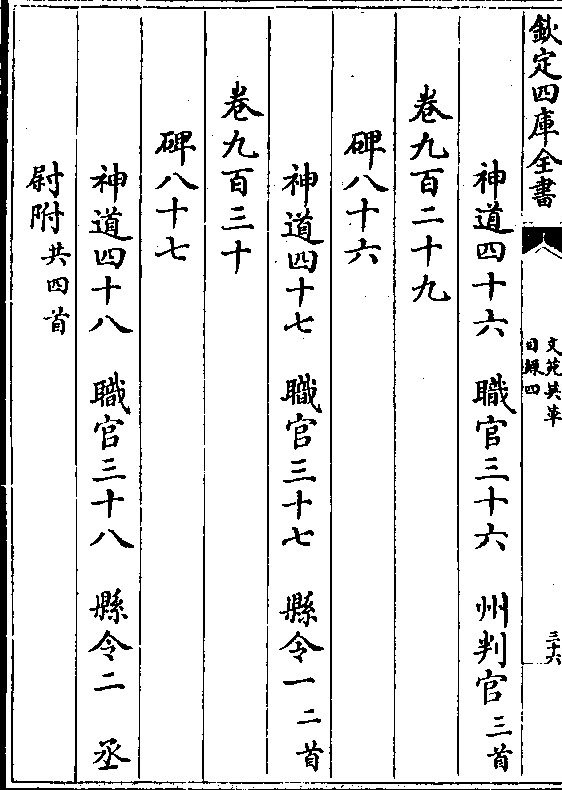 欽定四庫全書
文苑英華
目録四
三十六
神道四十六　職官三十六　州判官三首
卷九百二十九
碑八十六
神道四十七　職官三十七　縣令一二首
卷九百三十
碑八十七
神道四十八　職官三十八　縣令二　丞
尉附共四首